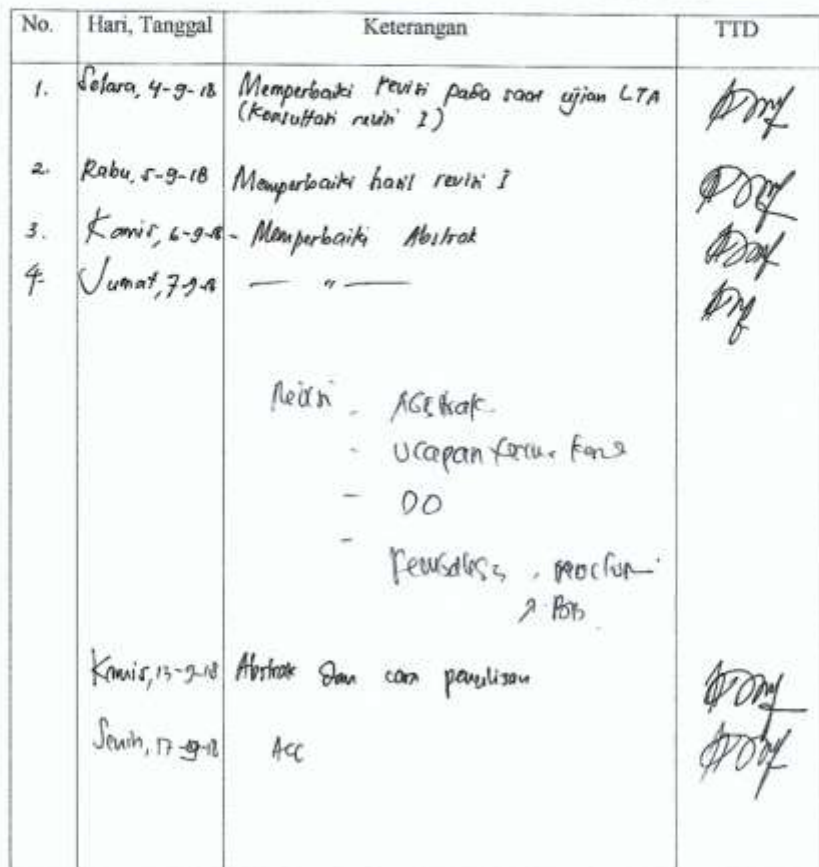 No. Hari, Tanggal Keterangan TTD
1. Selasa, 4-9-18 Memperbaiki revisi pada saat ujian LTA
(Konsultasi revisi I)
2. Rabu, 5-9-18 Memperbaiki hasil revisi I
3. Kamis, 6-9-18 - Memperbaiki Abstrak
4. Jumat, 7-9-18 — " —
Revisi - Abstrak
- Ucapan
- DO
-
Kamis, 13-9-18 Abstrak dan cara penulisan
Senin, 17-9-18 Acc